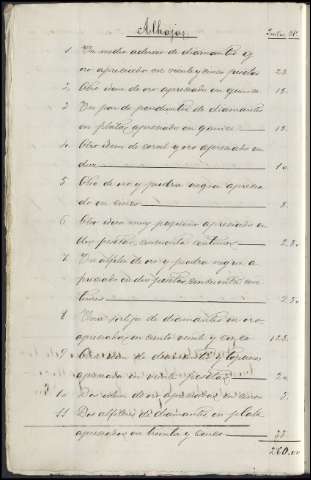 Alhajas
1 Un medio aderezo de diamantes y
oro apreciado en veinte y cinco pesetas 25.
2 Otro idem de oro apreciado en quince 15.
3 Un par de pendientes de diamantes
en plata, apreciado en quince 15.
4 Otro idem de coral y oro apreciado en
diez 10.
5 Otro de oro y piedra negra aprecia-
do en cinco 5.
6 Otro idem muy pequeño apreciado en
dos pesetas, cincuenta centimos 2.50
7 Un alfiler de oro y piedra negra a-
preciado en dos pesetas cincuenta cen-
timos 2.50
8 Una sortija de diamantes en oro
apreciada en ciento veinte y cinco 125.
9 Otra idem de diamantes y topacio
apreciada en veinte pesetas 20.
10 Dos idem de oro apreciadas en cinco 5.
11 Dos alfileres de diamantes en plata
apreciados en treinta y cinco 35
260.00